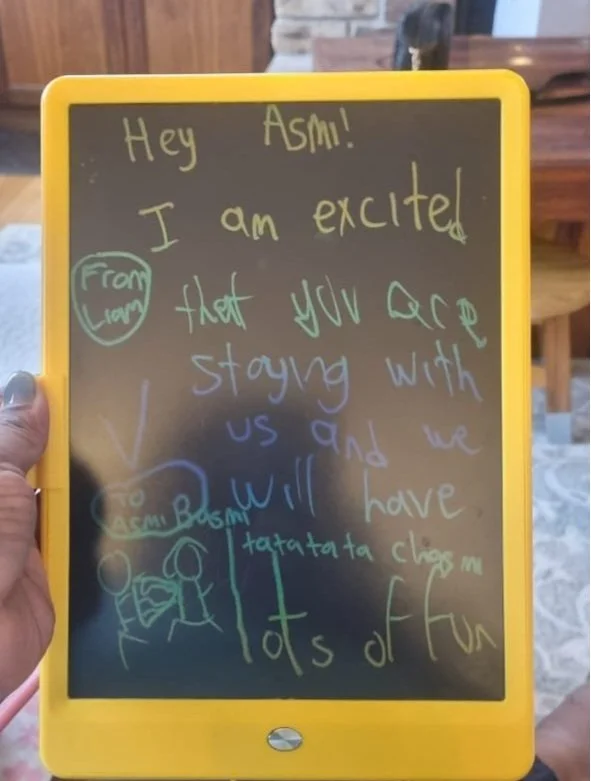 Hey Asmi!
I am excited
From
Liam
that you are
staying with
us and we
To
Asmi Basmi
will have
tatatata chasmi
lots of fun